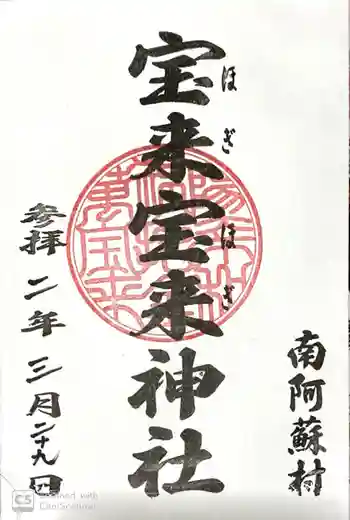 南阿蘇村
宝来宝来神社
ほぎ ほぎ
参拝 二年 三月二十九日
CS Scanned with CamScanner